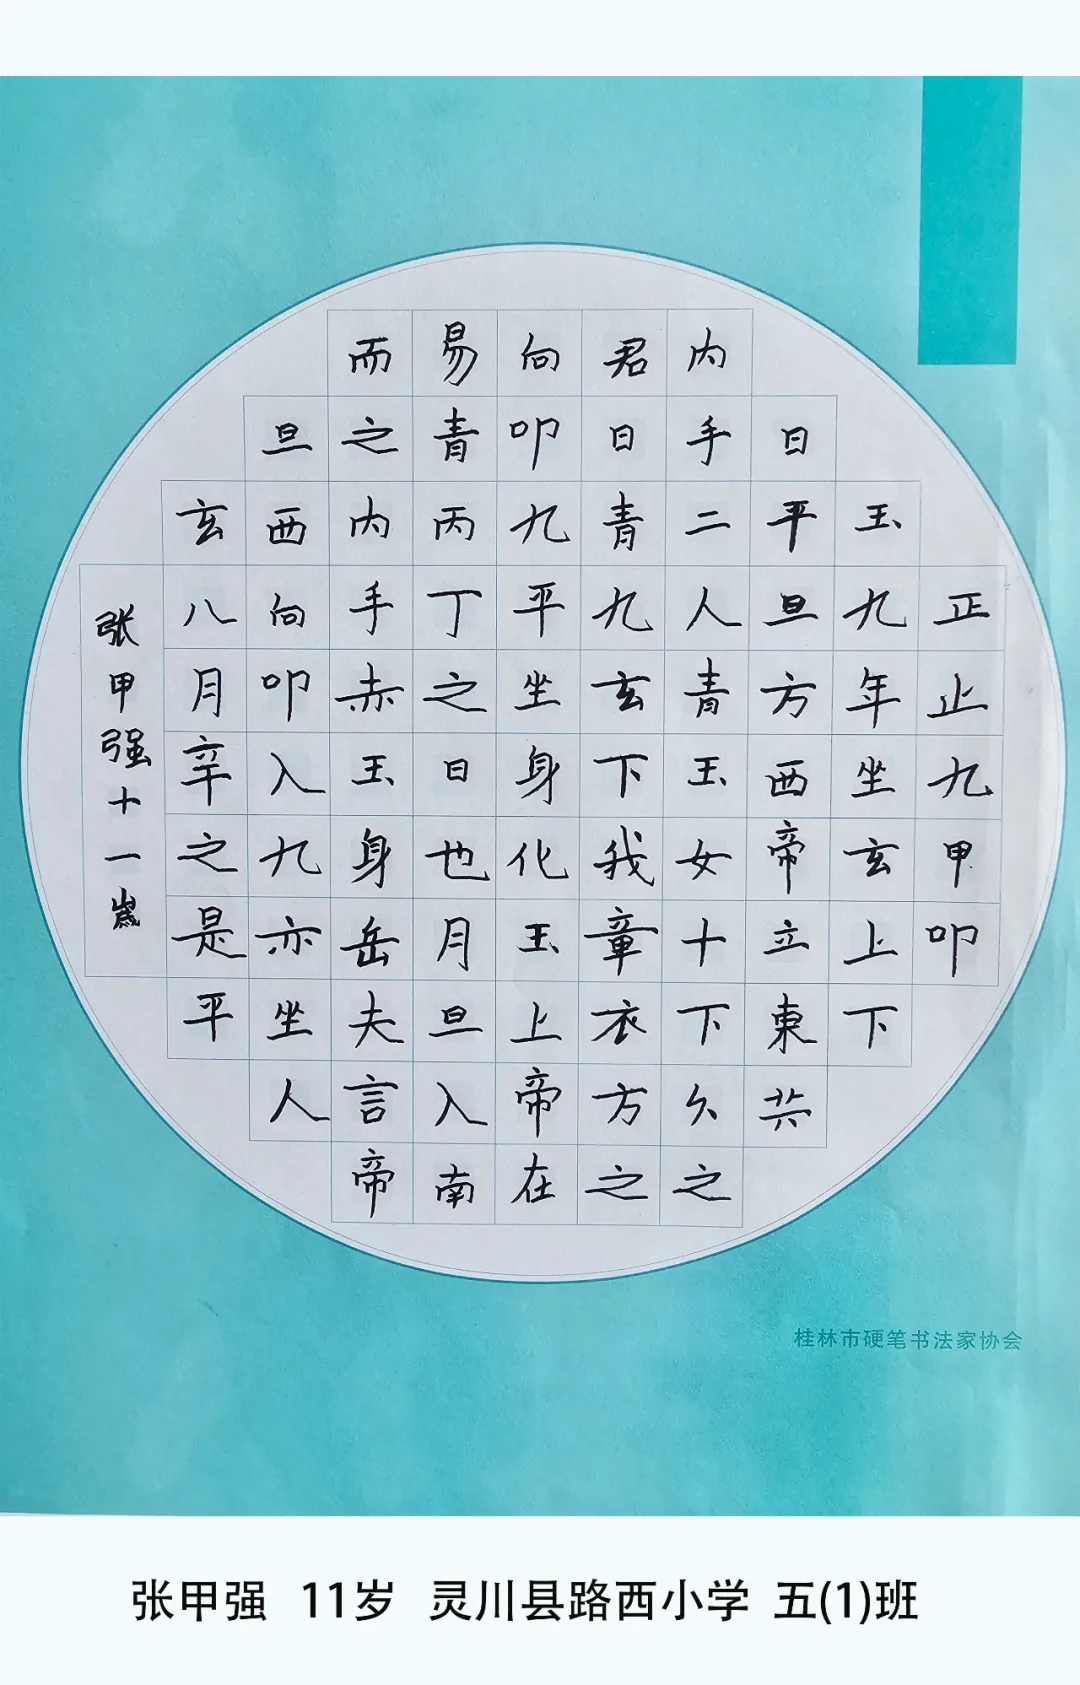 正止九甲叩
玉九年坐玄上下
日平旦方西帝立東共
内手二人青玉女十下久之
君日青九玄下我章衣方之
向叩九平坐身化玉上帝在
易青丙丁之日也月旦入南
而之内手赤玉身岳夫言帝
旦西向叩入九亦坐人
玄八月辛之是平
张甲强十一歲
桂林市硬笔书法家协会
张甲强 11岁 灵川县路西小学 五(1)班